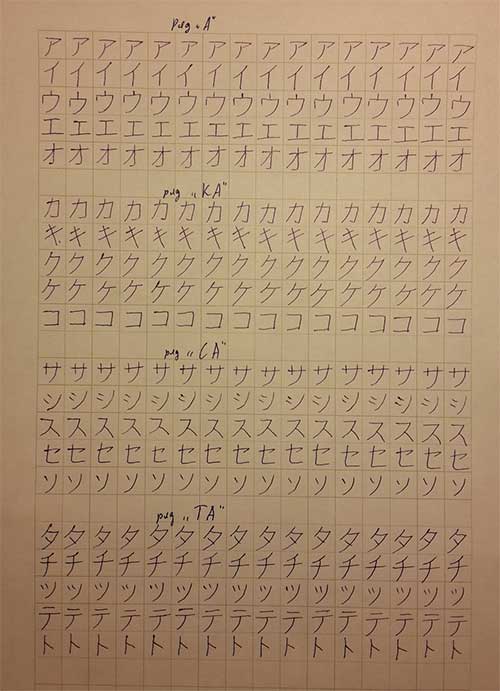 ряд „А“
アアアアアアアアアアアアアアアア
イイイイイイイイイイイイイイイイ
ウウウウウウウウウウウウウウウウ
エエエエエエエエエエエエエエエエ
オオオオオオオオオオオオオオオオ
ряд „КА“
カカカカカカカカカカカカカカカカ
キキキキキキキキキキキキキキキキ
クククククククククククククククク
ケケケケケケケケケケケケケケケケ
ココココココココココココココココ
ряд „СА“
ササササササササササササササササ
シシシシシシシシシシシシシシシシ
スススススススススススススススス
セセセセセセセセセセセセセセセセ
ソソソソソソソソソソソソソソソソ
ряд „ТА“
タタタタタタタタタタタタタタタタ
チチチチチチチチチチチチチチチチ
ッッッッッッッッッッッッッッッッ
テテテテテテテテテテテテテテテテ
トトトトトトトトトトトトトトトト